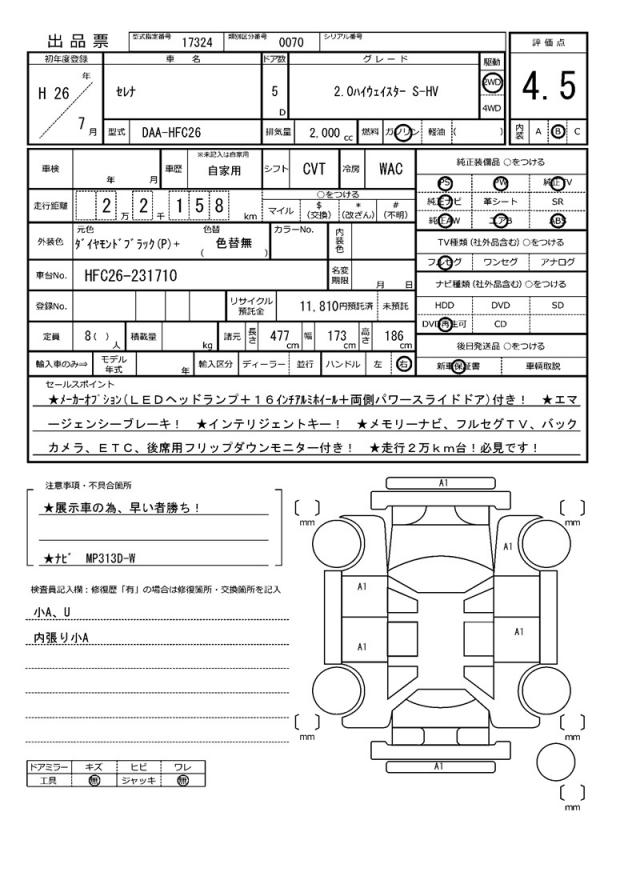 出品票
型式指定番号 17324 類別区分番号 0070 シリアル番号
評価点
4.5
内装 A B C
初年度登録 車名 ドア数 グレード 駆動
H 26 年 7 月
セレナ
5 D
2.0ハイウェイスター S-HV
2WD
4WD
型式 DAA-HFC26 排気量 2,000 cc 燃料 ガソリン 軽油 ( )
車検 年 月 車歴 ※未記入は自家用 自家用 シフト CVT 冷房 WAC
走行距離 2 万 2 千 1 5 8 km
○をつける
マイル $ (交換) * (改ざん) # (不明)
外装色 元色 ダイヤモンドブラック(P)+ 色替 ( 色替無 ) カラーNo. 内装色
車台No. HFC26-231710 名変期限 月 日
登録No. リサイクル預託金 11,810円預託済 未預託
定員 8( ) 人 積載量 kg 諸元 長さ 477 cm 幅 173 cm 高さ 186 cm
輸入車のみ⇒ モデル年式 年 輸入区分 ディーラー 並行 ハンドル 左 右
純正装備品 ○をつける
PS PW 純正TV
純正ナビ 革シート SR
純正AW エアB ABS
TV種類(社外品含む)○をつける
フルセグ ワンセグ アナログ
ナビ種類(社外品含む)○をつける
HDD DVD SD
DVD再生可 CD
後日発送品 ○をつける
新車保証書 車輌取説
セールスポイント
★メーカーオプション(LEDヘッドランプ+16インチアルミホイール+両側パワースライドドア)付き! ★エマ
ージェンシーブレーキ! ★インテリジェントキー! ★メモリーナビ、フルセグTV、バック
カメラ、ETC、後席用フリップダウンモニター付き! ★走行2万km台!必見です!
注意事項・不具合箇所
★展示車の為、早い者勝ち!
★ナビ MP313D-W
検査員記入欄:修復歴「有」の場合は修復箇所・交換箇所を記入
小A、U
内張り小A
ドアミラー キズ ヒビ ワレ
工具 無 ジャッキ 無
A1
[ ] mm
[ ] mm
A1
A1
A1
A1
[ ] mm
[ ] mm
A1
[ ] mm